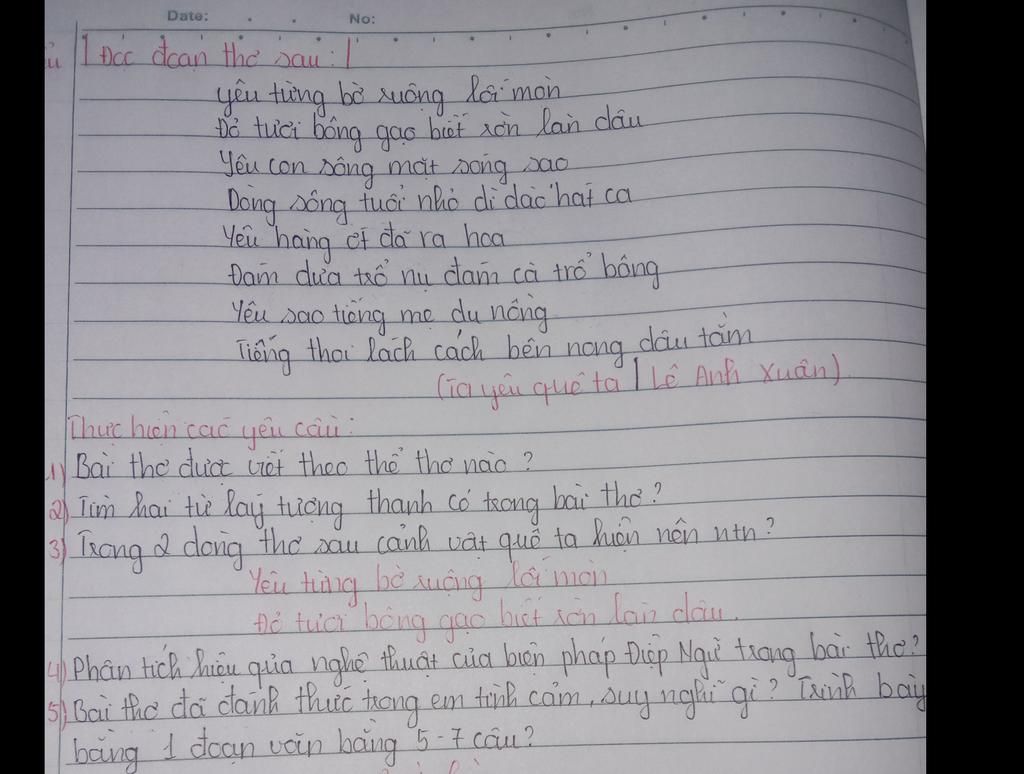 Date: No:
ủ Đọc đoạn thơ sau:
Yêu từng bờ ruộng lối mòn
Đỏ tươi bông gạo biết rờn làn dâu
Yêu con sông mặt sóng sao
Dòng sông tuổi nhỏ dì dào hát ca
Yêu hàng ớt đã ra hoa
Đám dưa trổ nụ đám cà trổ bông
Yêu sao tiếng mẹ du nồng
Tiếng thoi lách cách bên nong dâu tằm
(Ta yêu quê ta | Lê Anh Xuân)
Thực hiện các yêu cầu:
1) Bài thơ được viết theo thể thơ nào?
2) Tìm hai từ láy tượng thanh có trong bài thơ?
3) Trong 2 dòng thơ sau cảnh vật quê ta hiện nên ntn?
Yêu từng bờ ruộng lối mòn
Đỏ tươi bông gạo biết rờn làn dâu.
4) Phân tích hiệu qủa nghệ thuật của biện pháp Điệp Ngữ trong bài thơ?
5) Bài thơ đã đánh thức trong em tình cảm, suy nghĩ gì? Trình bày
bằng 1 đoạn văn bằng 5-7 câu?